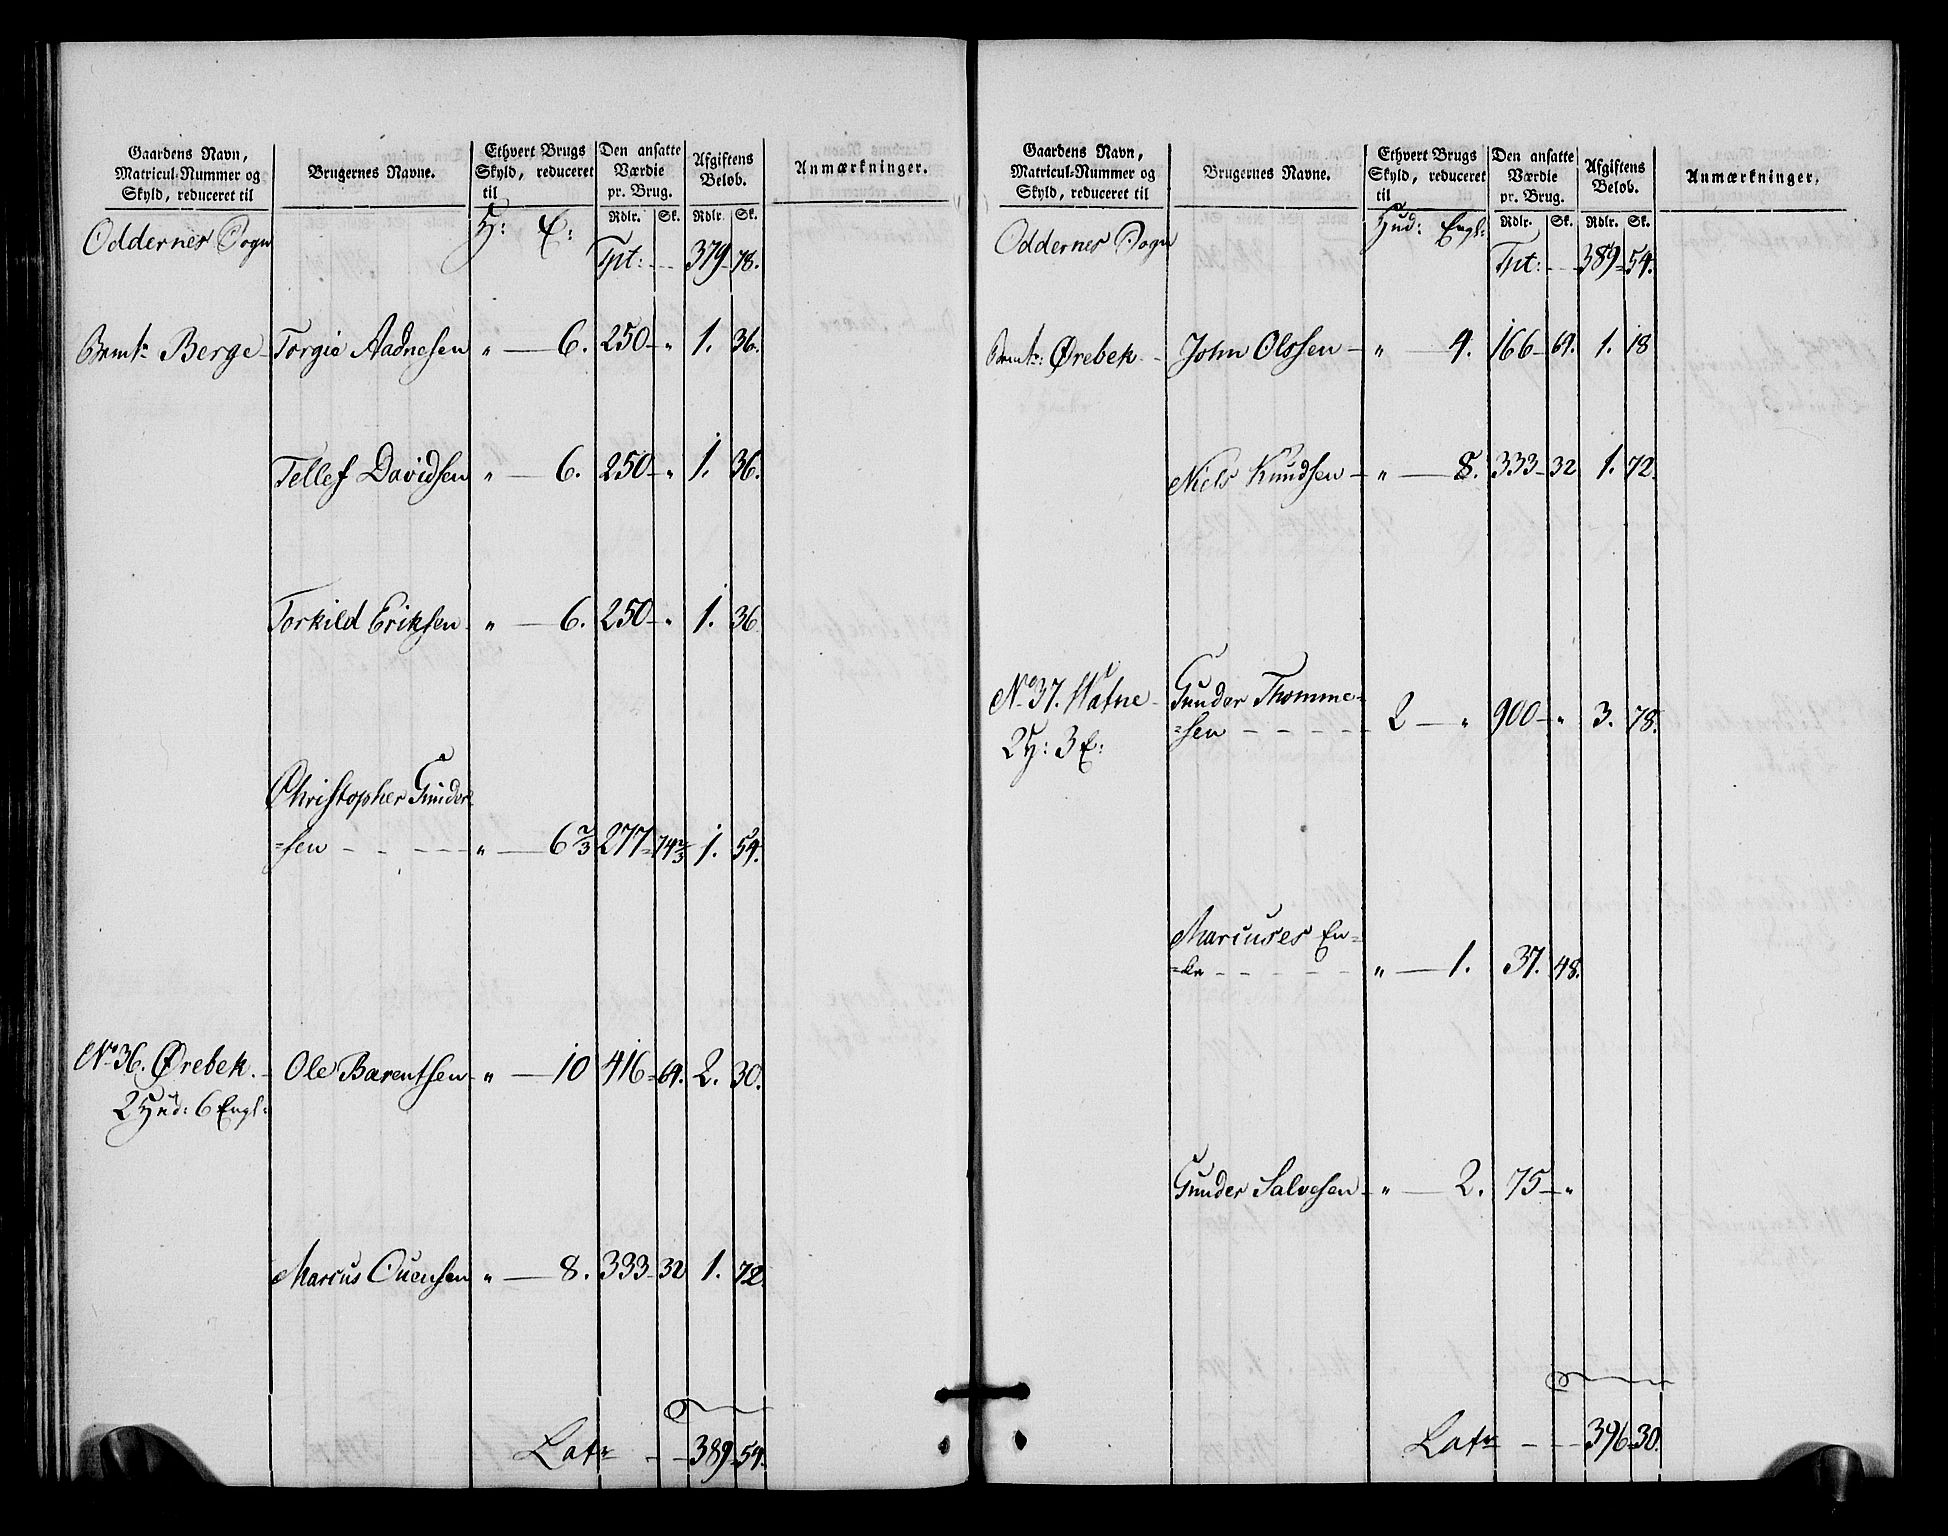 Gaardens Navn, Matricul-Nummer og Skyld, reduceret til | Brugernes Navne. | Ethvert Brugs Skyld, reduceret til | Den ansatte Værdie pr. Brug. | Afgiftens Beløb. | Anmærkninger.
Rdlr. Sk. Rdlr. Sk.
Oddernes Sogn H: E:
Tpt: 379 78.
Bemte Berge Torgie Aadnesen " 6. 250 " 1. 36.
Tellef Davidsen " 6. 250 " 1. 36.
Torkild Eriksen " 6. 250 " 1. 36
Christopher Gunder
=sen " 6 2/3 277 74 2/3 1. 54.
No 36. Ørebek. Ole Barentsen " 10 416 64. 2. 30.
2 Hud: 6 Engl:
Marcus Ouensen " 8. 333 32 1. 72.
Latr 389 54.
Gaardens Navn, Matricul-Nummer og Skyld, reduceret til | Brugernes Navne. | Ethvert Brugs Skyld, reduceret til | Den ansatte Værdie pr. Brug. | Afgiftens Beløb. | Anmærkninger.
Rdlr. Sk. Rdlr. Sk.
Oddernes Sogn Hud: Engl:
Tpt: 389 54.
Bemte: Ørebek John Olssen " 4. 166 64. 1. 18
Niels Knudsen " 8. 333 32 1. 72.
No 37. Watne Gunder Thomme=
2 H: 3 E: =sen 2 " 900 " 3. 78.
Marcuses En=
=ke " 1. 37. 48.
Gunder Salvesen " 2. 75 "
Latr 396 30.